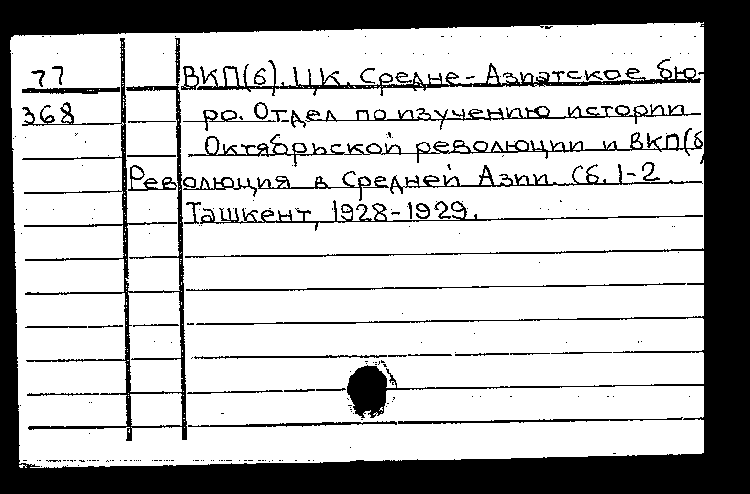 77 ВКП(б). Ц.К. Средне-Азиатское бю-
368 ро. Отдел по изучению истории
Октябрьской революции и ВКП(б
Революция в Средней Азии. Сб. 1-2.
Ташкент, 1928-1929.